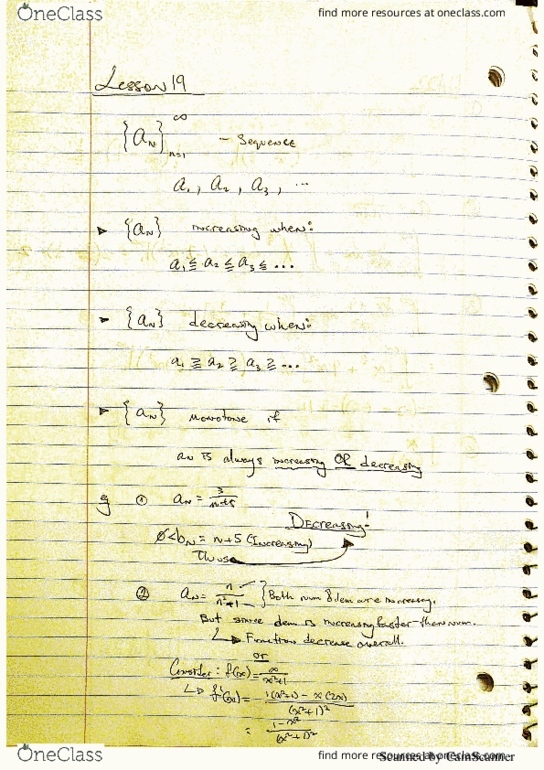 OneClass
find more resources at oneclass.com
Lesson 19
{a_N}_{n=1}^∞ - Sequence
a₁, a₂, a₃, ...
▸ {a_N} increasing when:
a₁ ≤ a₂ ≤ a₃ ≤ ...
▸ {a_N} decreasing when:
a₁ ≥ a₂ ≥ a₃ ≥ ...
▸ {a_N} monotone if
a_N is always increasing OR decreasing
eg ① a_N = 3/(n+5)
DECREASING!
0<b_N = n+5 (Increasing)
Thus
② a_N = n/(n²+1) } Both num & dem are increasing.
But since dem is increasing faster then num.
↳ Function decrease overall.
or
Consider: f(x) = x/(x²+1)
↳ f'(x) = (1(x²+1) - x(2x))/(x²+1)²
= (1-x²)/(x²+1)²
OneClass
find more resources at oneclass.com
Scanned by CamScanner